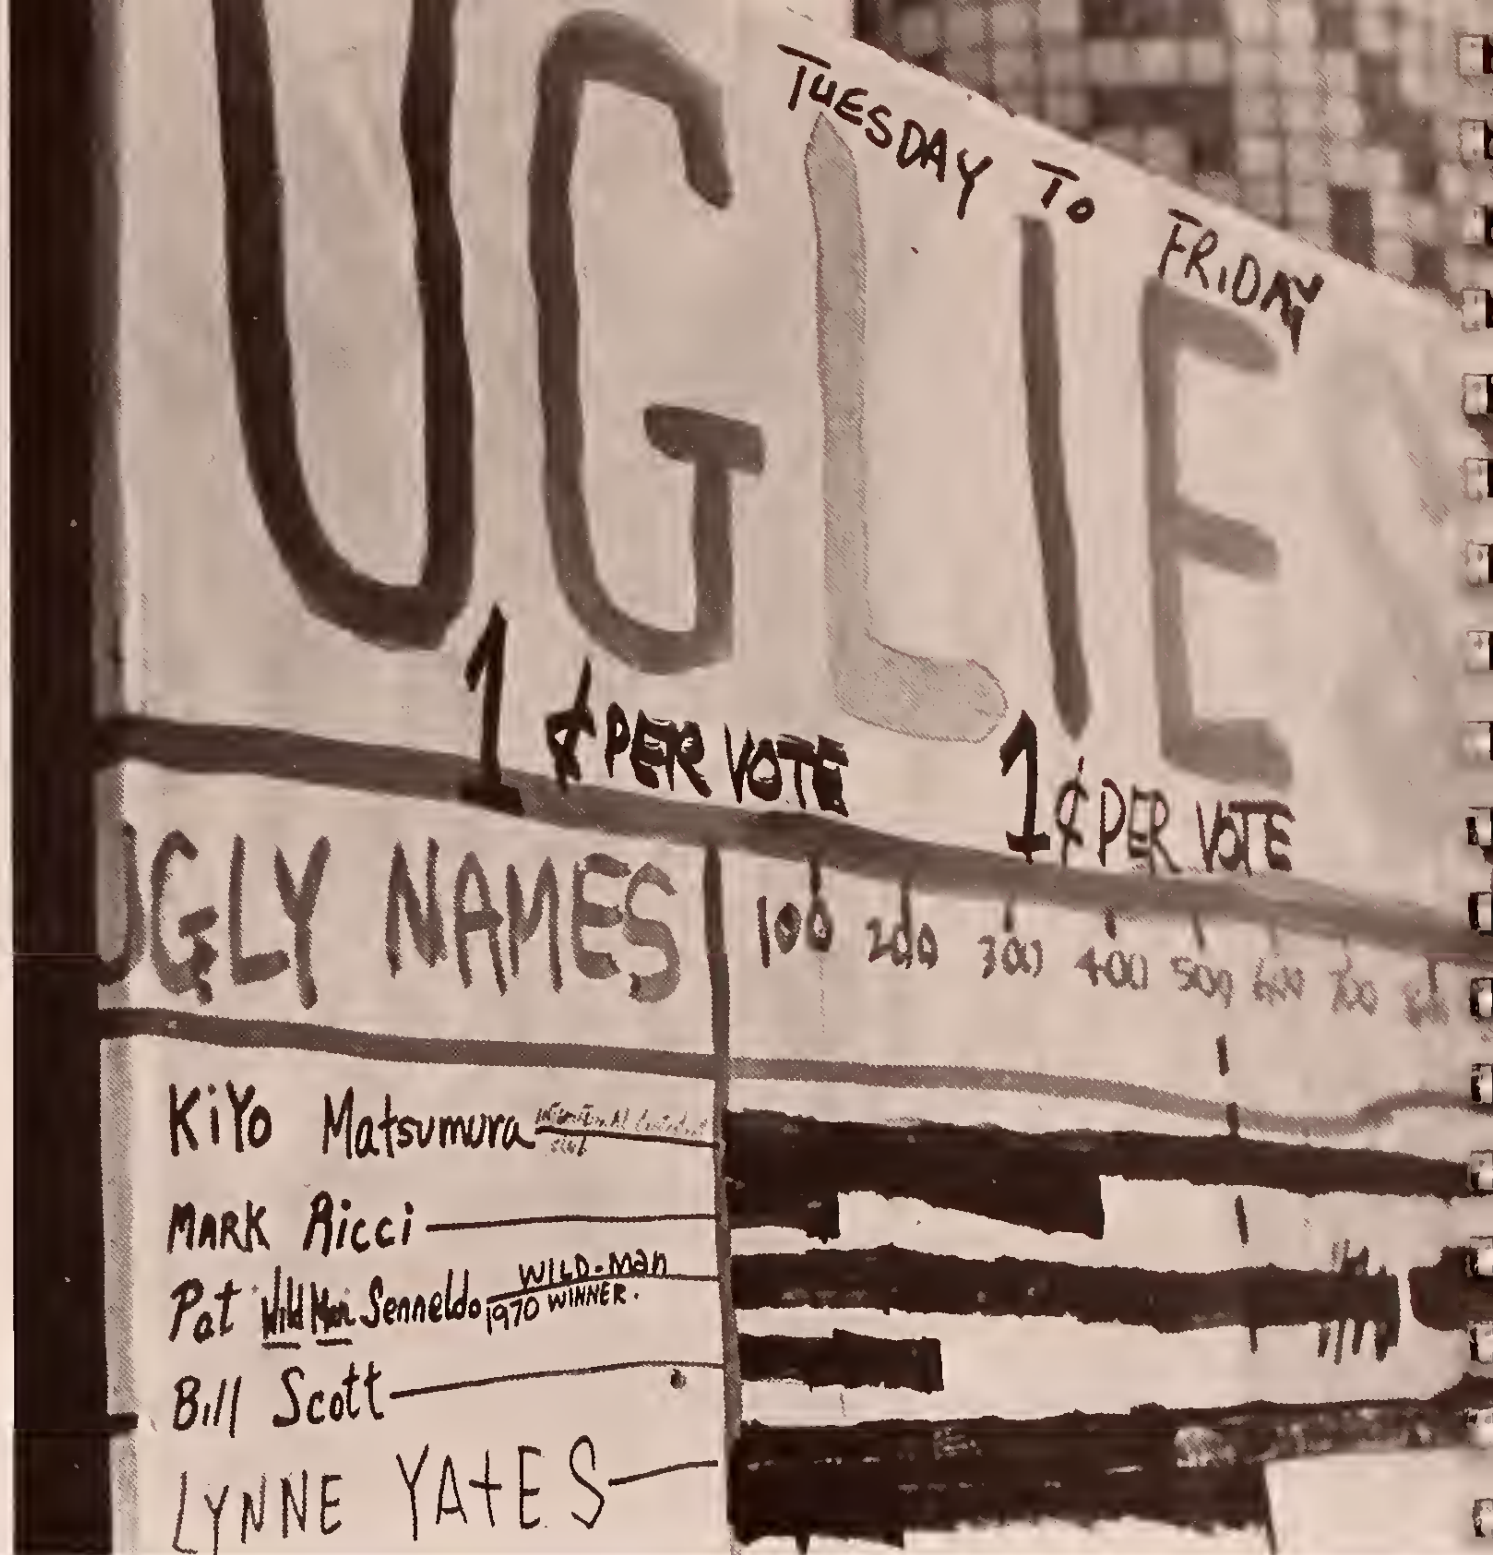 TUESDAY TO FRIDAY
UGLIE
1¢ PER VOTE 1¢ PER VOTE
UGLY NAMES 100 200 300 400 500 600 700
KiYo Matsumura
MARK Ricci
Pat Wild Man Senneldo WILD-MAN
1970 WINNER.
Bill Scott
LYNNE YAtES